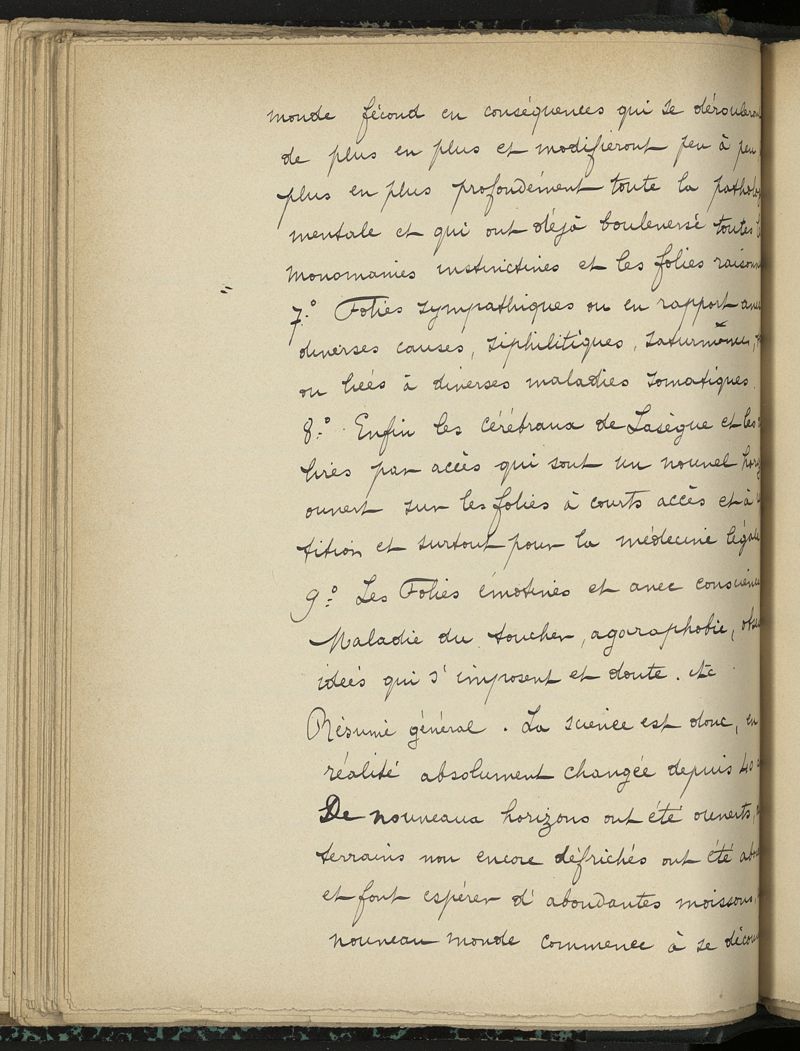 monde fécond en conséquences qui se dérouleront
de plus en plus et modifieront peu à peu,
plus en plus profondément toute la patholog
mentale et qui ont déjà bouleversé toutes l
monomanies instinctives et les folies raisonn
7.° Folies sympathiques ou en rapport avec
diverses causes, siphilitiques, saturnines,
ou liées à diverses maladies somatiques.
8.° Enfin les cérébraux de Lasègue et les
lires par accès qui sont un nouvel hori
ouvert sur les folies à courts accès et à
tition et surtout pour la médecine légale
9.° Les Folies émotives et avec conscience
Maladie du toucher, agoraphobie, obse
ideés qui s'imposent et doute. etc
Résumé général. La science est donc, en
réalité absolument changée depuis 40 a
De nouveaux horizons ont été ouverts,
terrains non encore défrichés ont été abor
et font espérer d'abondantes moissons,
nouveau monde commence à se décou